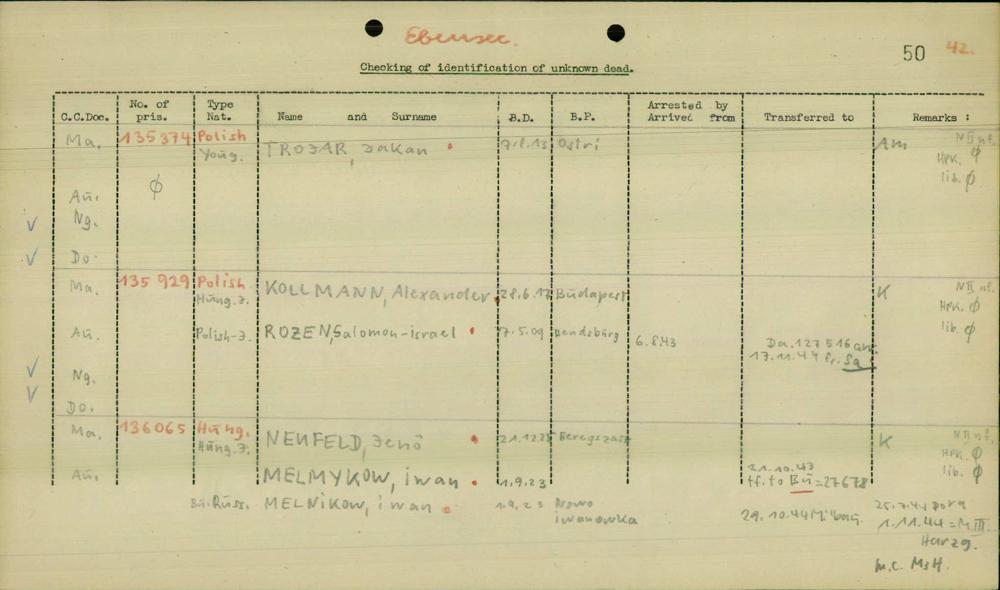 Ebensee.
50 42.
Checking of identification of unknown dead.
C.C.Doc. No. of pris. Type Nat. Name and Surname B.D. B.P. Arrested by Arrived from Transferred to Remarks :
Ma. 135374 Polish Am N II nf.
Yoūg. TROJAR, Jakan 7.1.13 Ostri HPK. ϕ
lib. ϕ
Aū. ϕ
Ng.
Do.
Ma. 135 929 Polish K N II nf.
Hūng.J. KOLLMANN, Alexander 28.6.17 Būdapest HPK. ϕ
lib. ϕ
Aū. Polish-J. ROZEN, Salomon-israel 7.5.09 6.8.43 Da. 127516
17.11.44
Ng.
Do.
Ma. 136065 Hūng. K N II nf.
Hūng.J. NEUFELD, Jenö Beregszasz HPK. ϕ
lib. ϕ
Aū. MELMYKOW, iwan 1.9.23 21.10.43
tf. to Bū = 27678
Bū. Rūss. MELNikow, iwan 1.9.23 Nowo
iwanowka
29.10.44 25.7.44 Dora
1.11.44 = M III.
Harzg.
m.c. M3H.